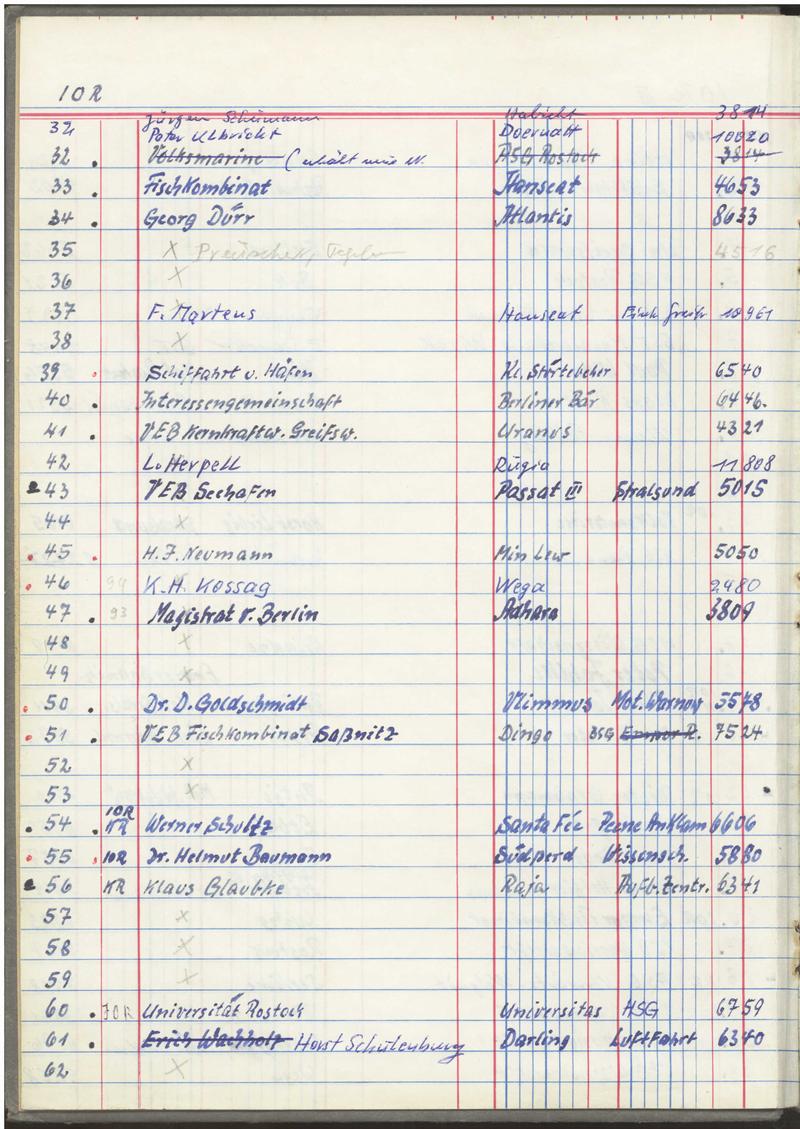 10R
Jürgen Schümann Habicht 3814
32 Peter Ulbricht 10020
32 . Volksmarine ( erhält neue N. ASG Rostock 3814
33 . Fischkombinat Hanseat 4653
34 . Georg Dürr Atlantis 8633
35 x 4516
36 x
37 F. Martens Hanseat 10961
38 x
39 . Schiffahrt u. Häfen Kl. Störtebeker 6540
40 . Interessengemeinschaft Berliner Bär 6446.
41 . VEB Kernkraftw. Greifsw. Uranus 4321
42 L. Herpell Rügia 11808
43 VEB Seehafen Passat III Stralsund 5015
44 x
. 45 . H. J. Neumann Min Lew 5050
. 46 . 94 K. H. Kossag Wega 2480
47 . 93 Magistrat v. Berlin Adhara 3809
48 x
49 x
. 50 . Dr. D. Goldschmidt Vlimmus Mot. Warnow 5578
. 51 . VEB Fischkombinat Saßnitz Dingo BSG Empor R. 7524
52 x
53 x
10R
. 54 . KR Werner Schultz Santa Fée Peene Anklam 6606
. 55 . 10R Dr. Helmut Baumann Südperd Wissensch. 5880
56 KR Klaus Glaubke Raja Aufb. Zentr. 6341
57 x
58 x
59 x
60 . 10R Universität Rostock Universitas HSG 6759
61 . Erich Wachholz Horst Schulenburg Darling Luftfahrt 6340
62 x